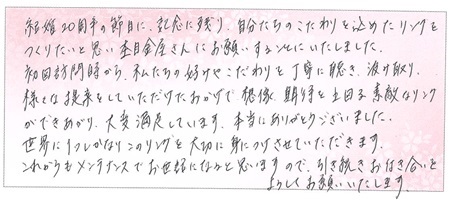 結婚20周年の節目に、記念に残り、自分たちのこだわりを込めたリングを
つくりたいと思い杢目金屋さんにお願いすることにいたしました。
初回訪問時から、私たちの好みやこだわりを丁寧に聴き、汲み取り、
様々な提案をしていただけたおかげで想像、期待を上回る素敵なリング
ができあがり、大変満足しています。本当にありがとうございました。
世界に1つしかないこのリングを大切に身につけさせていただきます。
これからもメンテナンスでお世話になると思いますので、引き続きお付き合いを
よろしくお願いいたします。